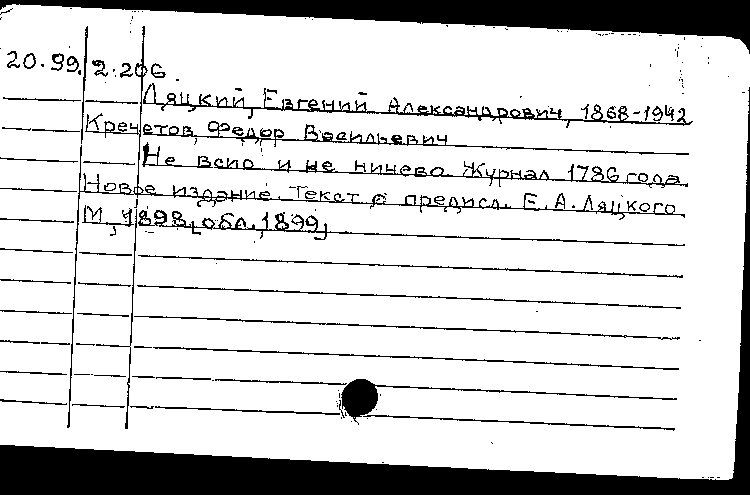 20.99.2.206.
Ляцкий, Евгений Александрович, 1868-1942
Кречетов, Федор Васильевич
Не всио и не ничево. Журнал 1786 года.
Новое издание. Текст с предисл. Е.А.Ляцкого
М., 1898, [обл., 1899]